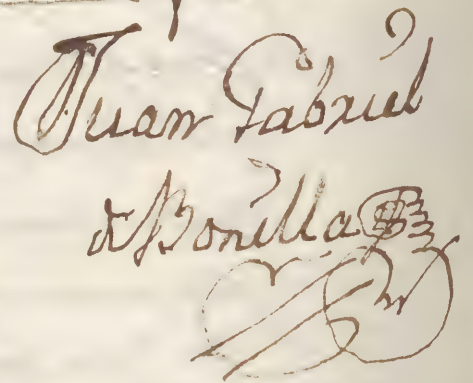 Juan Gabriel
de Bonilla